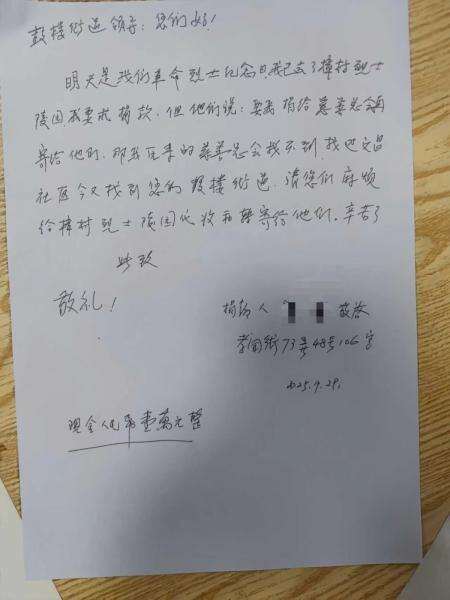 鼓楼街道领导：您们好！
明天是我们革命烈士纪念日我已去了樟村烈士
陵园我要求捐款，但他们说：要捐给慈善总会
寄给他们，那我原来的慈善总会找不到，找过文昌
社区今又找到您的鼓楼街道，请您们麻烦
给樟村烈士陵园代收和寄给他们，辛苦了
此致
敬礼！
捐款人 敬启
孝闻街73弄48号106室
2025.9.29.
现金人民币壹万元整